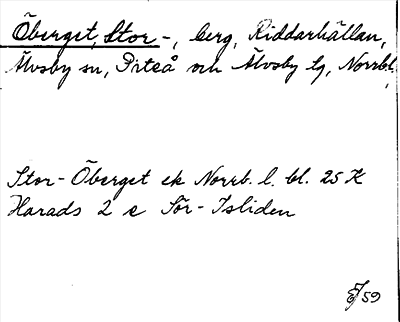 Öberget, Stor-, berg, Riddarhällan,
Älvsby sn, Piteå och Älvsby tg, Norrb.l.
Stor-Öberget ek Norrb. l. bl. 25 K
Harads 2 e Sör-Isliden
59